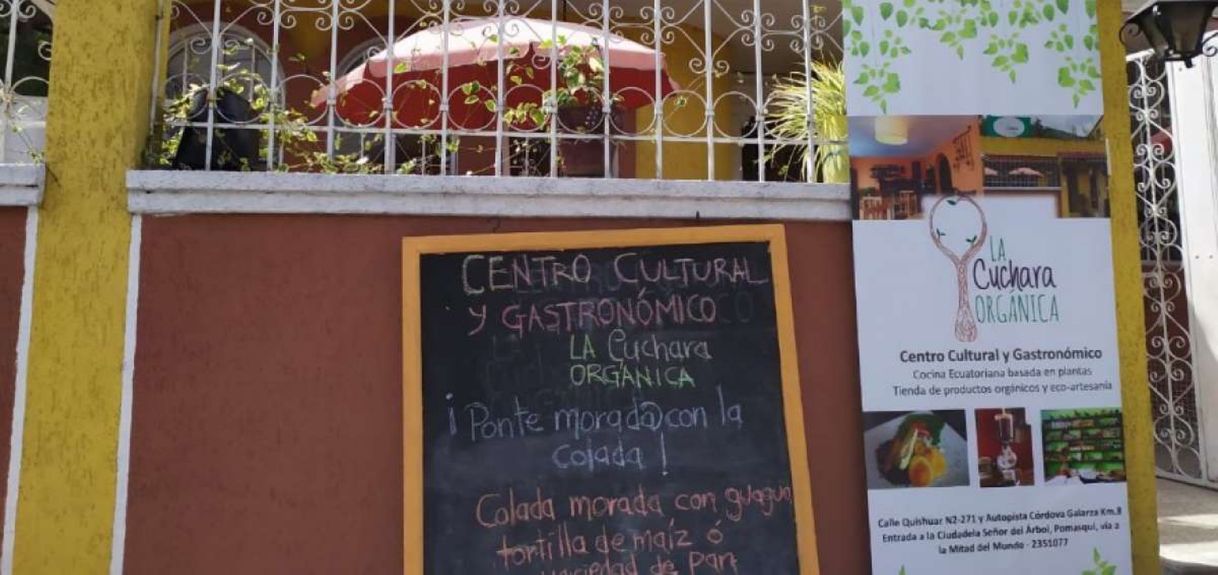 CENTRO CULTURAL
y GASTRONÓMICO
LA Cuchara
ORGANICA
¡Ponte morad@ con la
colada!
Colada morada con guagua,
tortilla de maíz ó
variedad de Pan
LA
Cuchara
ORGÁNICA
Centro Cultural y Gastronómico
Cocina Ecuatoriana basada en plantas
Tienda de productos orgánicos y eco-artesanía
Calle Quishuar N2-271 y Autopista Córdova Galarza Km.8
Entrada a la Ciudadela Señor del Árbol, Pomasqui, vía a
la Mitad del Mundo - 2351077